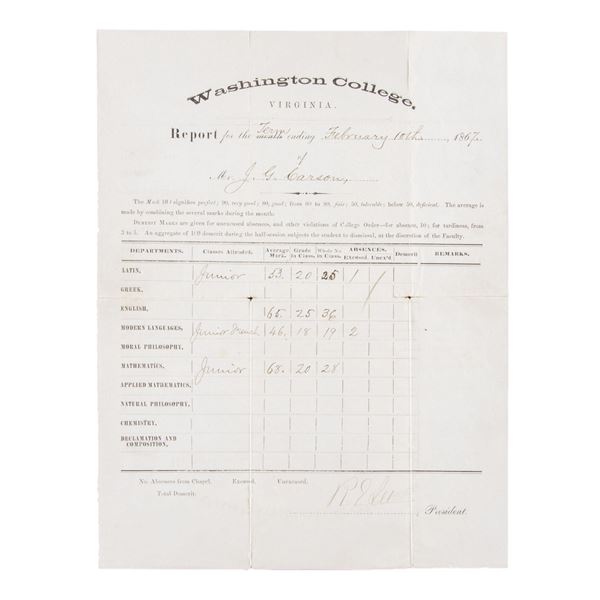 Washington College,
VIRGINIA.
Report for the month Term ending February 10th, 1867.
of
Mr. J. G. Carson,
The Mark 100 signifies perfect; 90, very good; 80, good; from 60 to 80, fair; 50, tolerable; below 50, deficient. The average is
made by combining the several marks during the month.
DEMERIT MARKS are given for unexcused absences, and other violations of College Order—for absence, 10; for tardiness, from
3 to 5. An aggregate of 100 demerit during the half-session subjects the student to dismissal, at the discretion of the Faculty.
DEPARTMENTS. Classes Attended. Average Mark. Grade in Class. Whole No. in Class. ABSENCES. Excused Unex'd Demerit REMARKS.
LATIN, Junior 53. 20 25 1 /
GREEK,
ENGLISH, 65. 25 36
MODERN LANGUAGES, Junior French 46. 18 19 2
MORAL PHILOSOPHY,
MATHEMATICS, Junior 68. 20 28
APPLIED MATHEMATICS,
NATURAL PHILOSOPHY,
CHEMISTRY,
DECLAMATION AND
COMPOSITION,
No. Absences from Chapel. Excused, Unexcused.
Total Demerit.
R E Lee
, President.